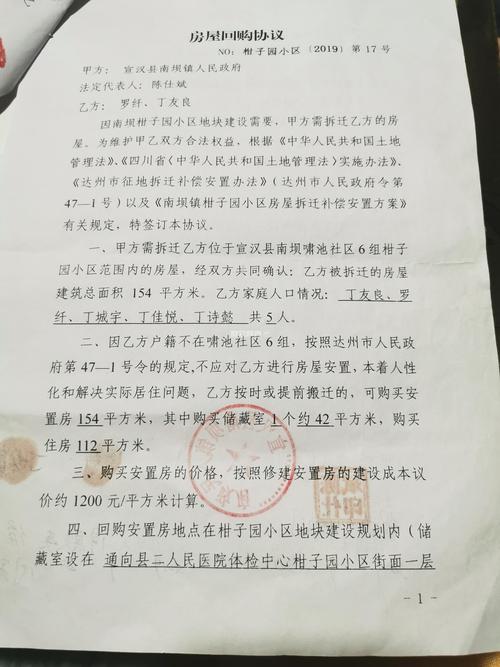 房屋回购协议
NO：柑子园小区〔2019〕第 17 号
甲方：宣汉县南坝镇人民政府
法定代表人：陈仕斌
乙方：罗纤、丁友良
因南坝柑子园小区地块建设需要，甲方需拆迁乙方的房
屋。为维护甲乙双方合法权益，根据《中华人民共和国土地
管理法》、《四川省〈中华人民共和国土地管理法〉实施办法》、
《达州市征地拆迁补偿安置办法》（达州市人民政府令第
47—1 号）以及《南坝镇柑子园小区房屋拆迁补偿安置方案》
有关规定，特签订本协议。
一、甲方需拆迁乙方位于宣汉县南坝啸池社区 6 组柑子
园小区范围内的房屋，经双方共同确认：乙方被拆迁的房屋
建筑总面积 154 平方米。乙方家庭人口情况：丁友良、罗
纤、丁城宇、丁佳悦、丁诗懿 共 5 人。
二、因乙方户籍不在啸池社区 6 组，按照达州市人民政
府第 47—1 号令的规定,不应对乙方进行房屋安置，本着人性
化和解决实际居住问题，乙方按时或提前搬迁的，可购买安
置房 154 平方米，其中购买储藏室 1 个约 42 平方米，购买
住房 112 平方米。
三、购买安置房的价格，按照修建安置房的建设成本议
价约 1200 元/平方米计算。
四、回购安置房地点在柑子园小区地块建设规划内（储
藏室设在 通向县二人民医院体检中心柑子园小区街面一层
- 1 -